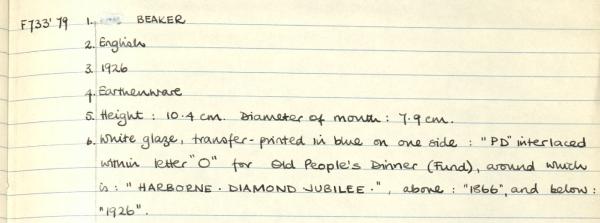 F733'79 1. BEAKER
2. English
3. 1926
4. Earthenware
5. Height : 10.4 cm. Diameter of mouth : 7.9 cm.
6. White glaze, transfer-printed in blue on one side : "PD" interlaced
within letter "O" for Old People's Dinner (Fund), around which
is : " HARBORNE · DIAMOND JUBILEE · ", above : "1866", and below :
"1926".